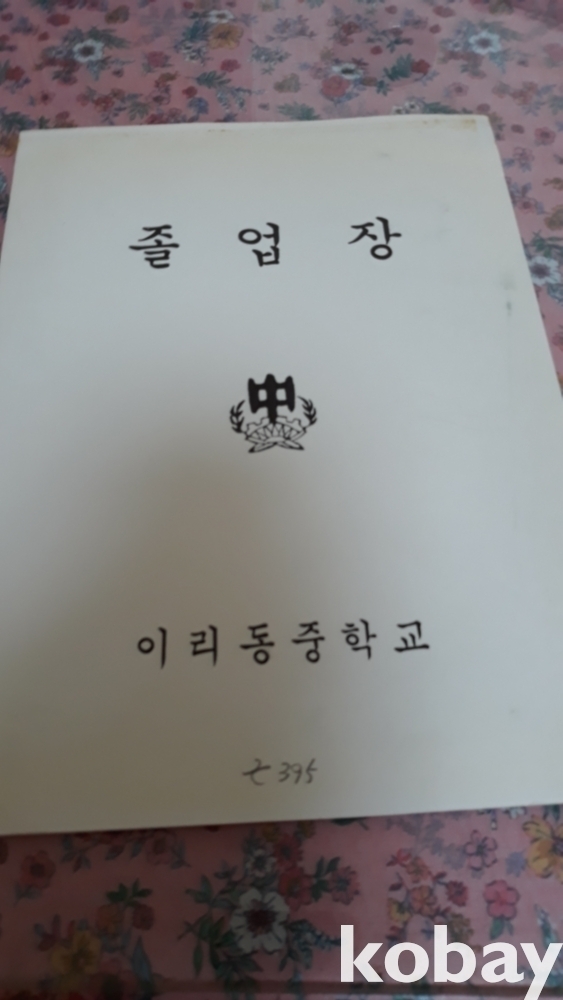 졸 업 장
中
이리동중학교
395
kobay